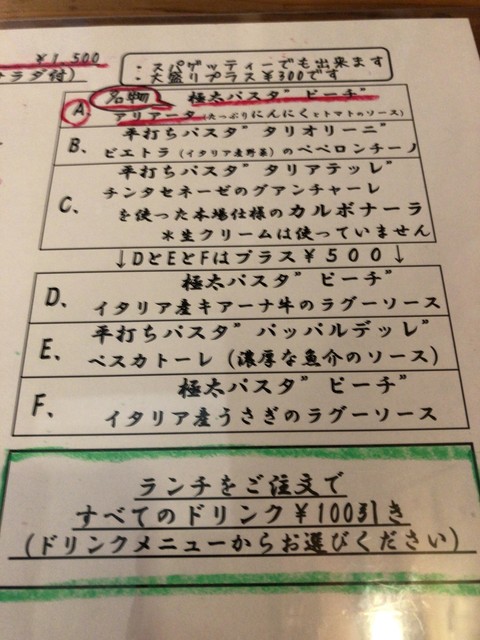 ¥1,500
サラダ付)
・スパゲッティーでも出来ます
・大盛りプラス¥300です
A 名物 極太パスタ"ピーチ"
アリアータ(たっぷりにんにくとトマトのソース)
B、 平打ちパスタ"タリオリーニ"
ピエトラ(イタリア産野菜)のペペロンチーノ
平打ちパスタ"タリアテッレ"
チンタセネーゼのグアンチャーレ
C、 を使った本場仕様のカルボナーラ
*生クリームは使っていません
↓DとEとFはプラス¥500↓
極太パスタ"ピーチ"
D、 イタリア産キアーナ牛のラグーソース
平打ちパスタ"パッパルデッレ"
E、 ペスカトーレ(濃厚な魚介のソース)
極太パスタ"ピーチ"
F、 イタリア産うさぎのラグーソース
ランチをご注文で
すべてのドリンク¥100引き
(ドリンクメニューからお選びください)